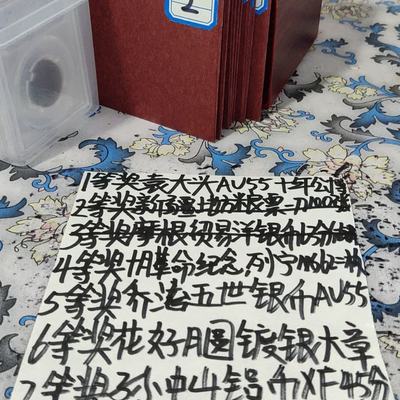 1等奖袁大头AU55十年公博
2等奖新疆地方粮票一刀100张
3等奖摩根贸易洋银币
4等奖十月革命纪念列宁
5等奖乔治五世银币AU55
6等奖花好月圆镀银大章
7等奖孙小中山铝币XF45分